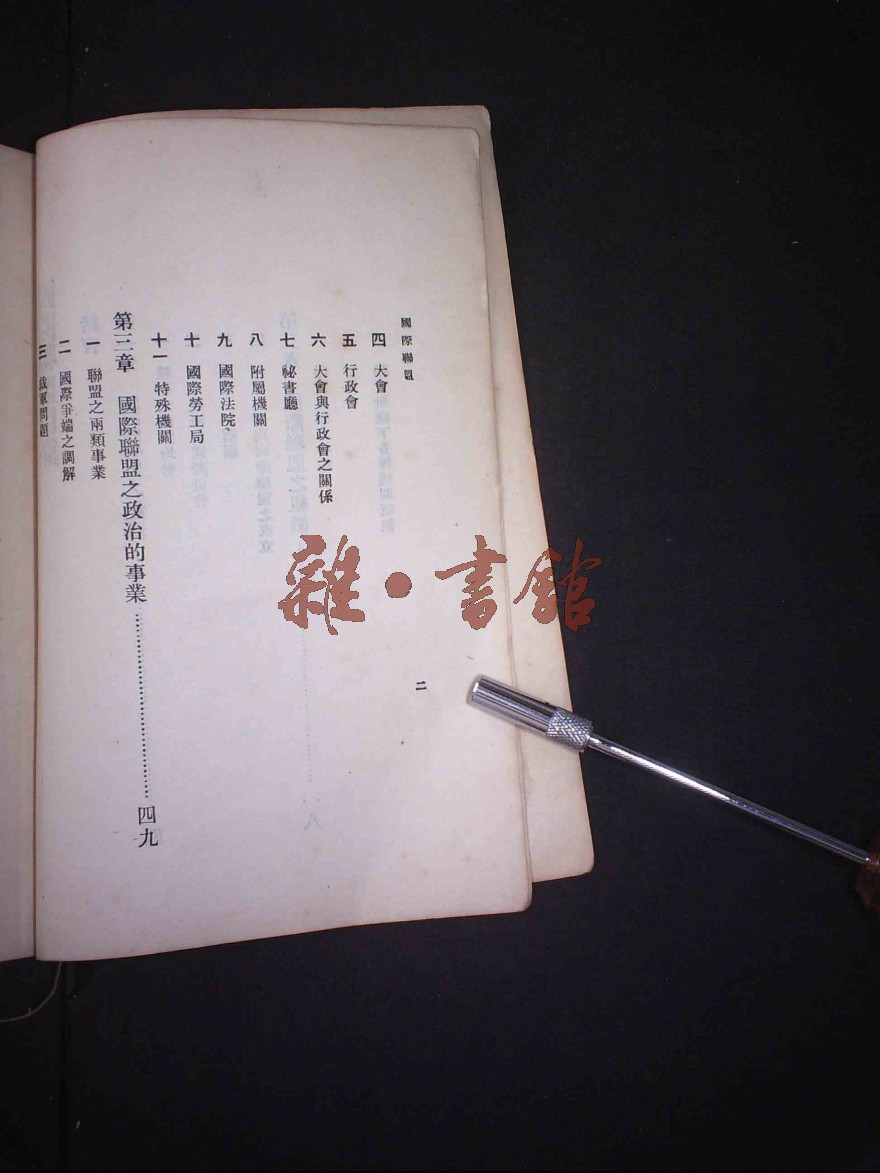 國際聯盟
四 大會
五 行政會
六 大會與行政會之關係
七 祕書廳
八 附屬機關
九 國際法院
十 國際勞工局
十一 特殊機關
第三章 國際聯盟之政治的事業……四九
一 聯盟之兩類事業
二 國際爭端之調解
三 裁軍問題
二
雜·書館